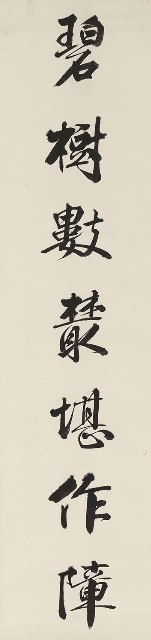 碧樹數叢堪作障